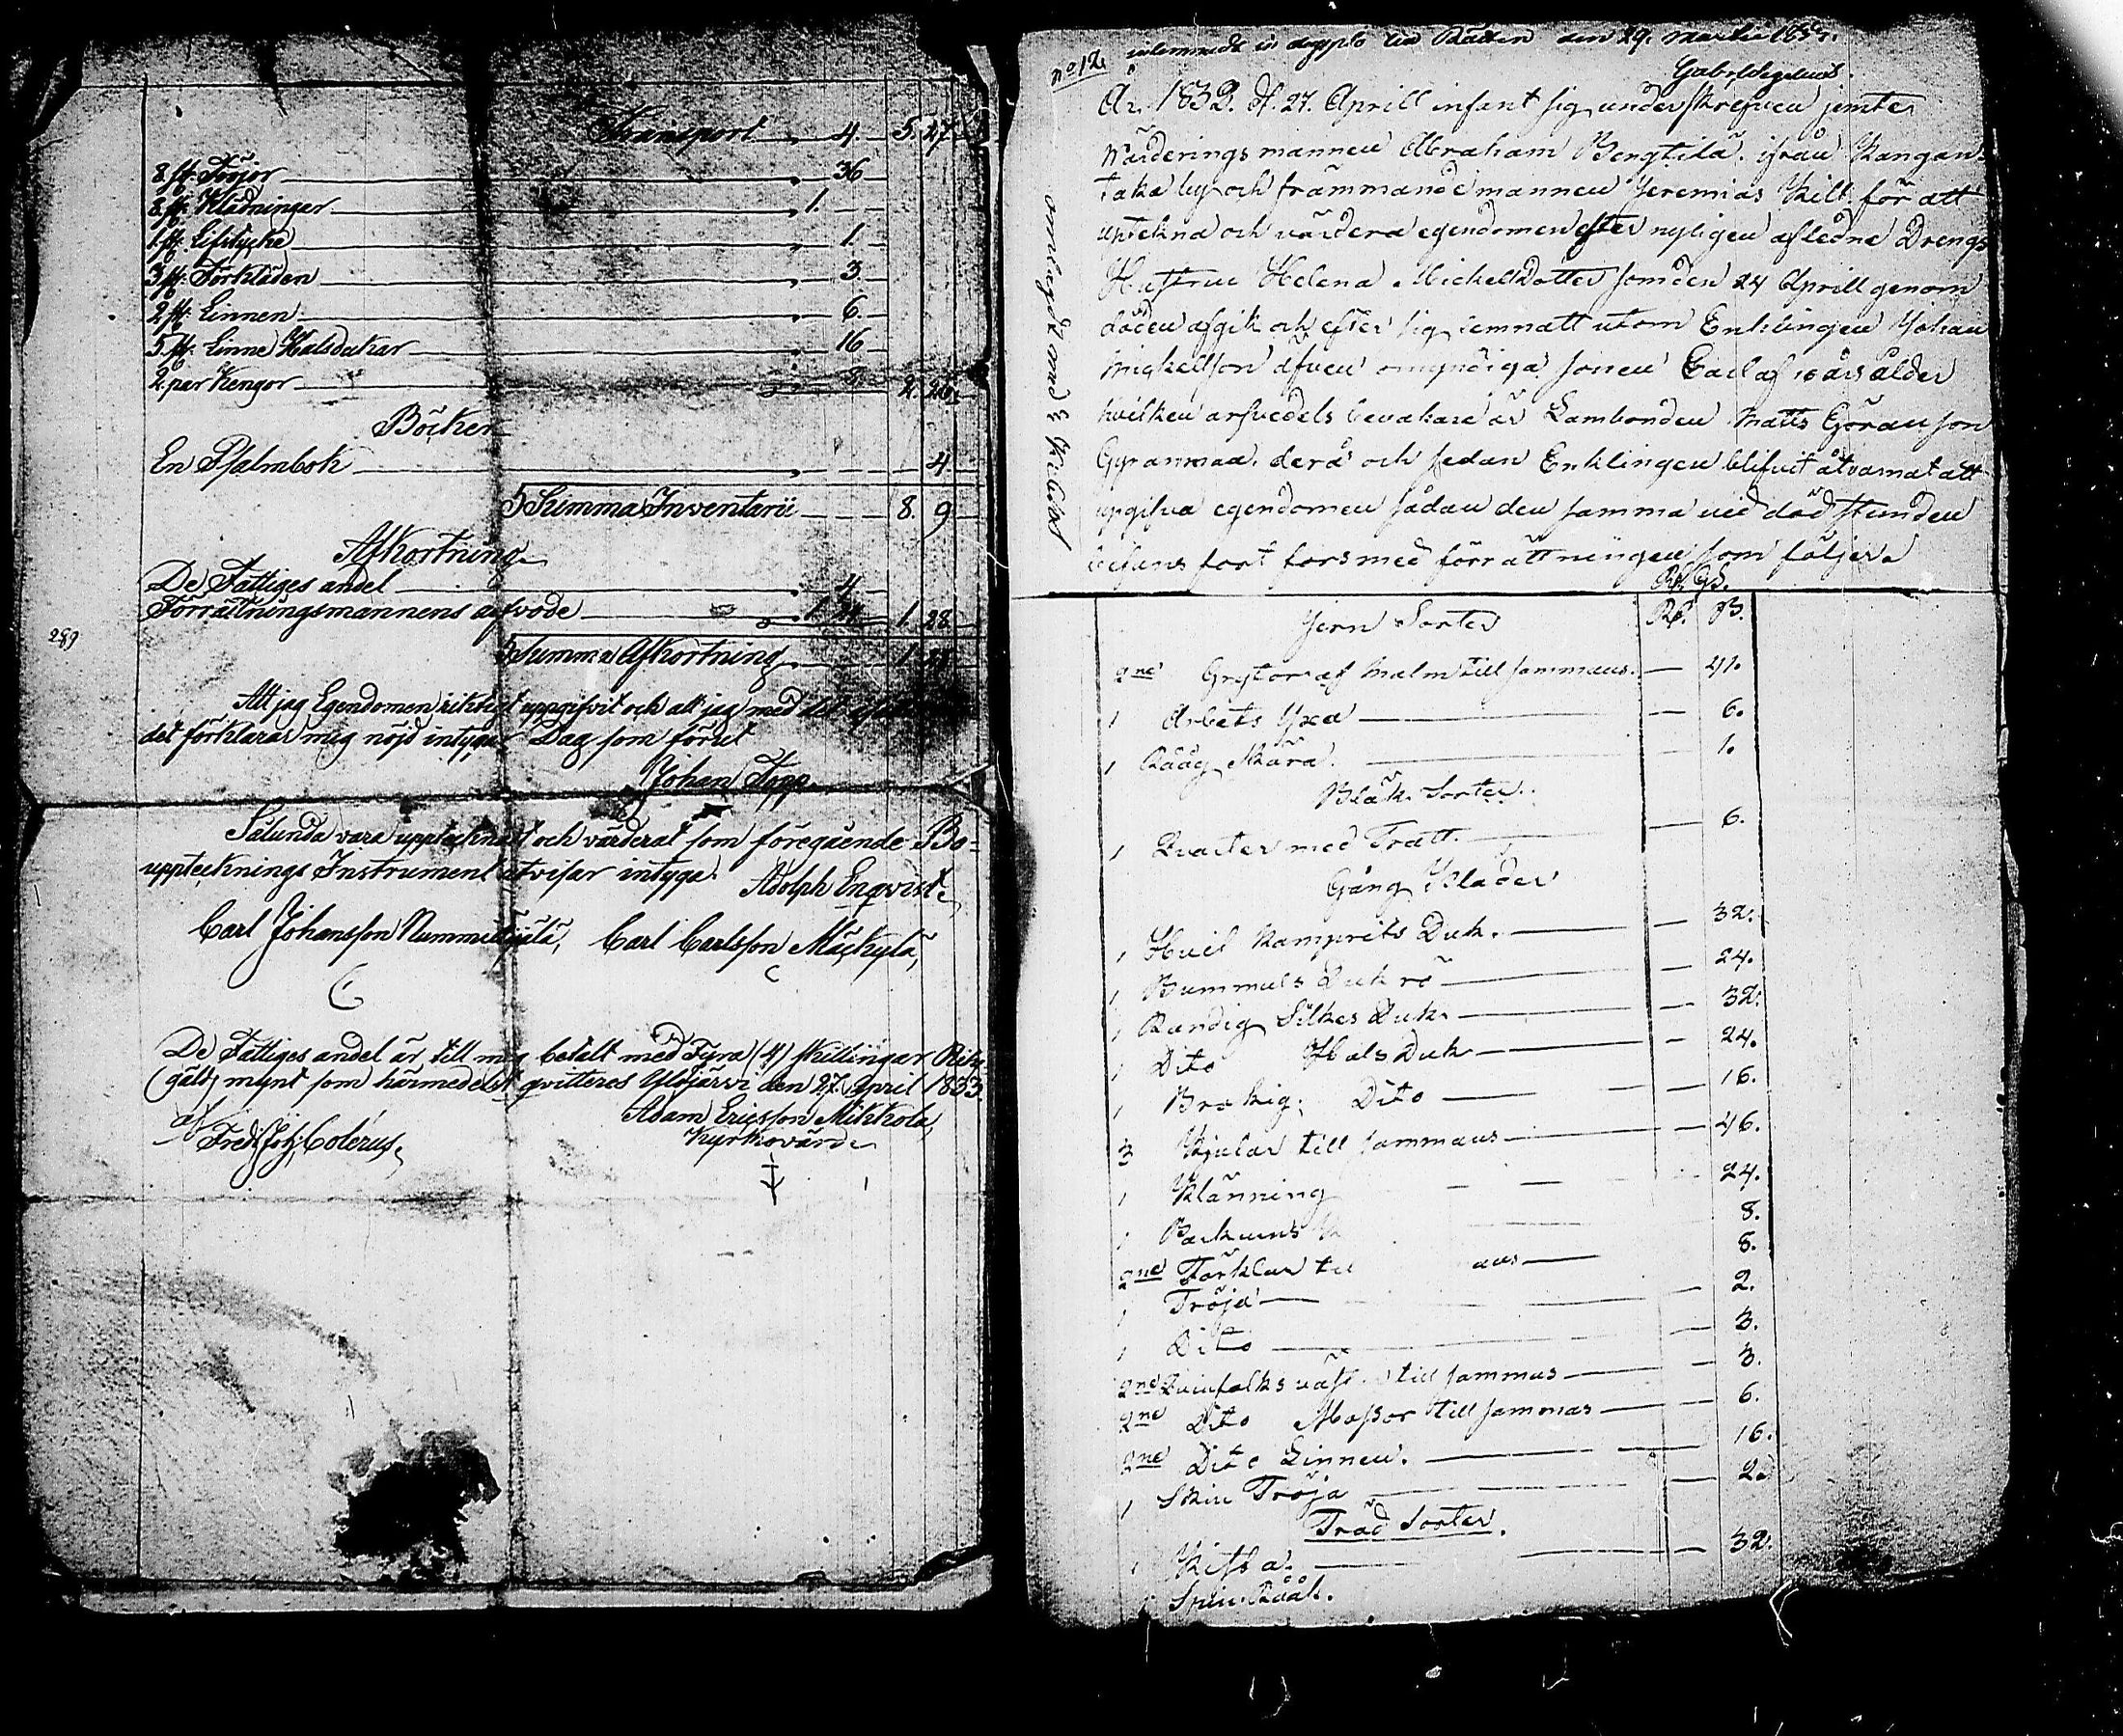 Transport 4. 5. 27.
8. st. Tröjor 36
8. st. Klädningar 1.
1. st. Lifstycke 1.
3. st. Förkläden 3.
2. st. Linnen 6.
5. st. Linne Halsdukar 16
2. par Kengor 8. 2. 20.
Böcker
En Psalmbok 4
Summa Inventarii 8. 9
Afkortning
De Fattiges andel 4
Förrättningsmannens arfvode 1. 24. 1. 28
289
Summa Afkortning 1. 28
Att jag Egendomen riktigt uppgifvit och att jag med
det förklarar mig nöjd intygar Dag som förut
Johan Topp
Sålunda vara upptecknat och värderat som föregående Bo-
upptecknings Instrument utvisar intyga. Adolph Enqvist
Carl Johansson Carl Carlsson Mäkylä,
De Fattiges andel är till mig betalt med Fyra (4) skillingar Riks
gälds mynt som härmedelst qvitteras Ylöjärvi den 27 April 1833.
af Adam Ericsson Mikkola
Fred: Joh: Colerus. Kyrkovärd
no 12 den 29. Martii
År 1832. d. 27. Aprill infant sig underskrefven jemte
Värderings mannen Abraham Bengtilä. ifrån Kangan-
taka by och främmande mannen Jeremias Kill. för att
uptekna och värdera egendomen efter nyligen afledne Drengs
Hustrun Helena Mickelsdotter som den 24 Aprill genom
döden afgik och efter sig lemnatt utom Enklingen Johan
Mickelsson äfven omyndiga sonen Carl af 10 års ålder
hvilken arfvedels bevakare är Lambonden Matts Göransson
Gyranmaa. derå och sedan Enklingen blifvit åtvarnat att
upgifva egendomen sådan den samma vid död stunden
befans fort fors med förrättningen som följer.
R. Gs.
Jern Sorter Rd. S.
2ne Grytor af Malm till sammans. 41.
1 Arbets Yxa 6.
1 Råag Skära. 1.
Bläk Sorter.
1 Qvarter med Tratt. 6.
Gång Kläder
1 Hvit Kamprits Duk. 32.
1 Bummuls Duk rö 24.
1 Randig Silkes Duk 32.
1 Dito Hals Duk 24.
1 Brokig. Dito 16.
3 Kjolar till sammans 46.
1 Klänning 24.
1 Parkums 8.
2ne Förklär 8.
1 Tröja 2.
1 Dito 3.
2ne Qvinfolks till sammans 3.
2ne Dito Mössor till sammas 6.
2ne Dito Linnen. 16.
1 Skin Tröja 2.
Träd Sorter.
1 Kista. 32.
1 Spin Råck.